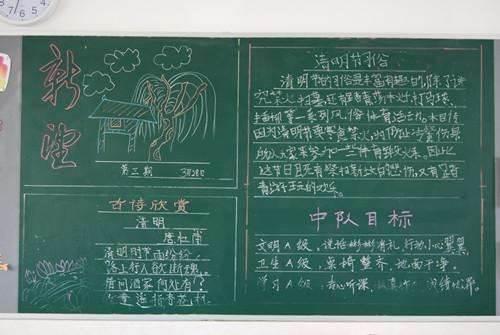 新望
第三期 3月28日
古诗欣赏
清明
唐杜甫
清明时节雨纷纷,
路上行人欲断魂。
借问酒家何处有?
牧童遥指杏花村。
清明节俗
清明节的习俗是丰富有趣的,除了讲
究禁火、扫墓,还有踏青、荡秋千、打马球、
插柳等一系列风俗体育活动。
因为清明节要寒食禁火,
所以大家来参加一些体育锻炼。因此,
这节日既有祭扫新坟的悲伤,又有踏青
游玩的欢乐。
中队目标
文明A级,说话彬彬有礼,行动小心翼翼
卫生A级,桌椅整齐,地面干净。
学习A级,专心听课,认真